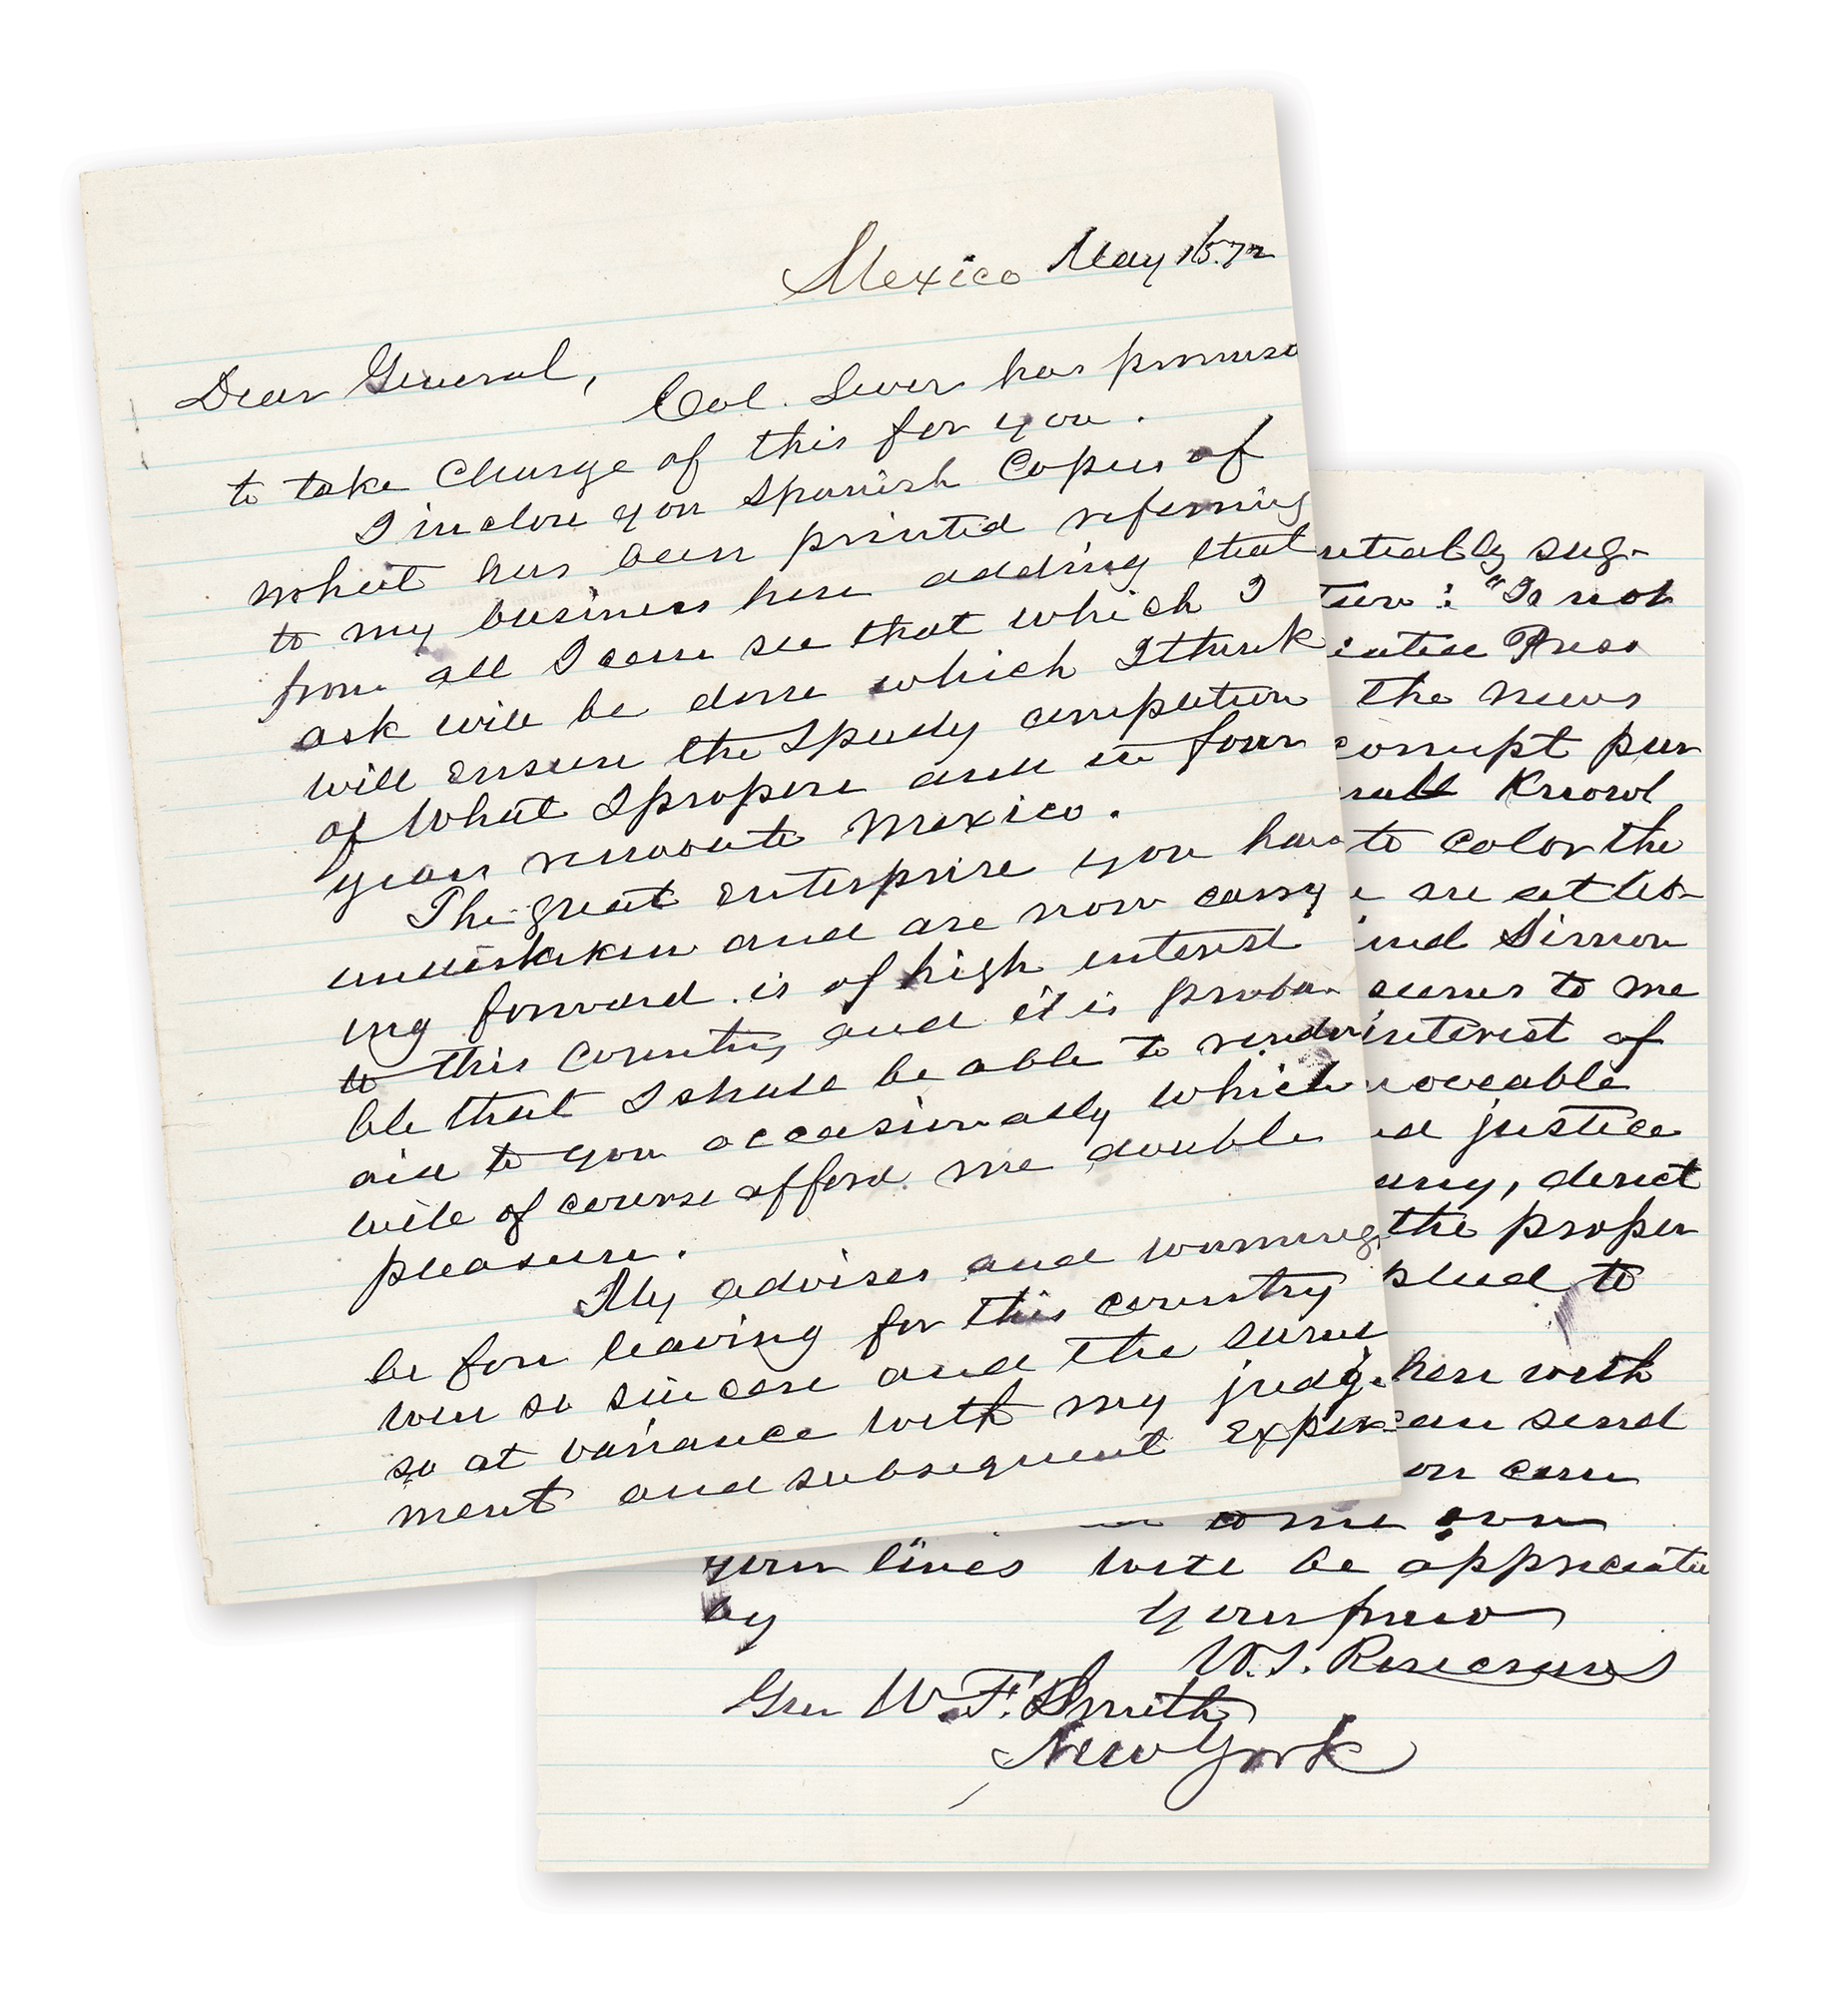 Mexico May 15. 72
Dear General,
Col. Sever has promise
to take charge of this for you.
I inclose you Spanish Copies of
what has been printed referring
to my business here adding that
from all I can see that which I
ask will be done which I think
will ensure the speedy completion
of What I propose and in four
years renovate Mexico.
The great enterprise you have
undertaken and are now carry
ing forward is of high interest
to this country and it is proba-
ble that I shall be able to render
aid to you occasionally which
will of course afford me double
pleasure.
My advises and warnings
before leaving for this country
were so sincere and the same
so at variance with my judg-
ment and subsequent exper
ntially sug-
"Is not
Press
the news
corrupt pur
Knowl
to color the
are at
and Simon
seems to me
interest of
moveable
justice
any, direct
the proper
to
here with
can send
on can
come on
your lines will be appreciate
by
Your friend
W. S. Rosecrans
Gen W. F. Smith
New York